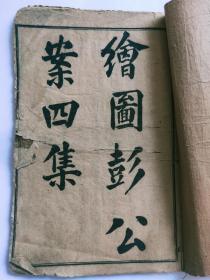 繪圖彭公
案四集